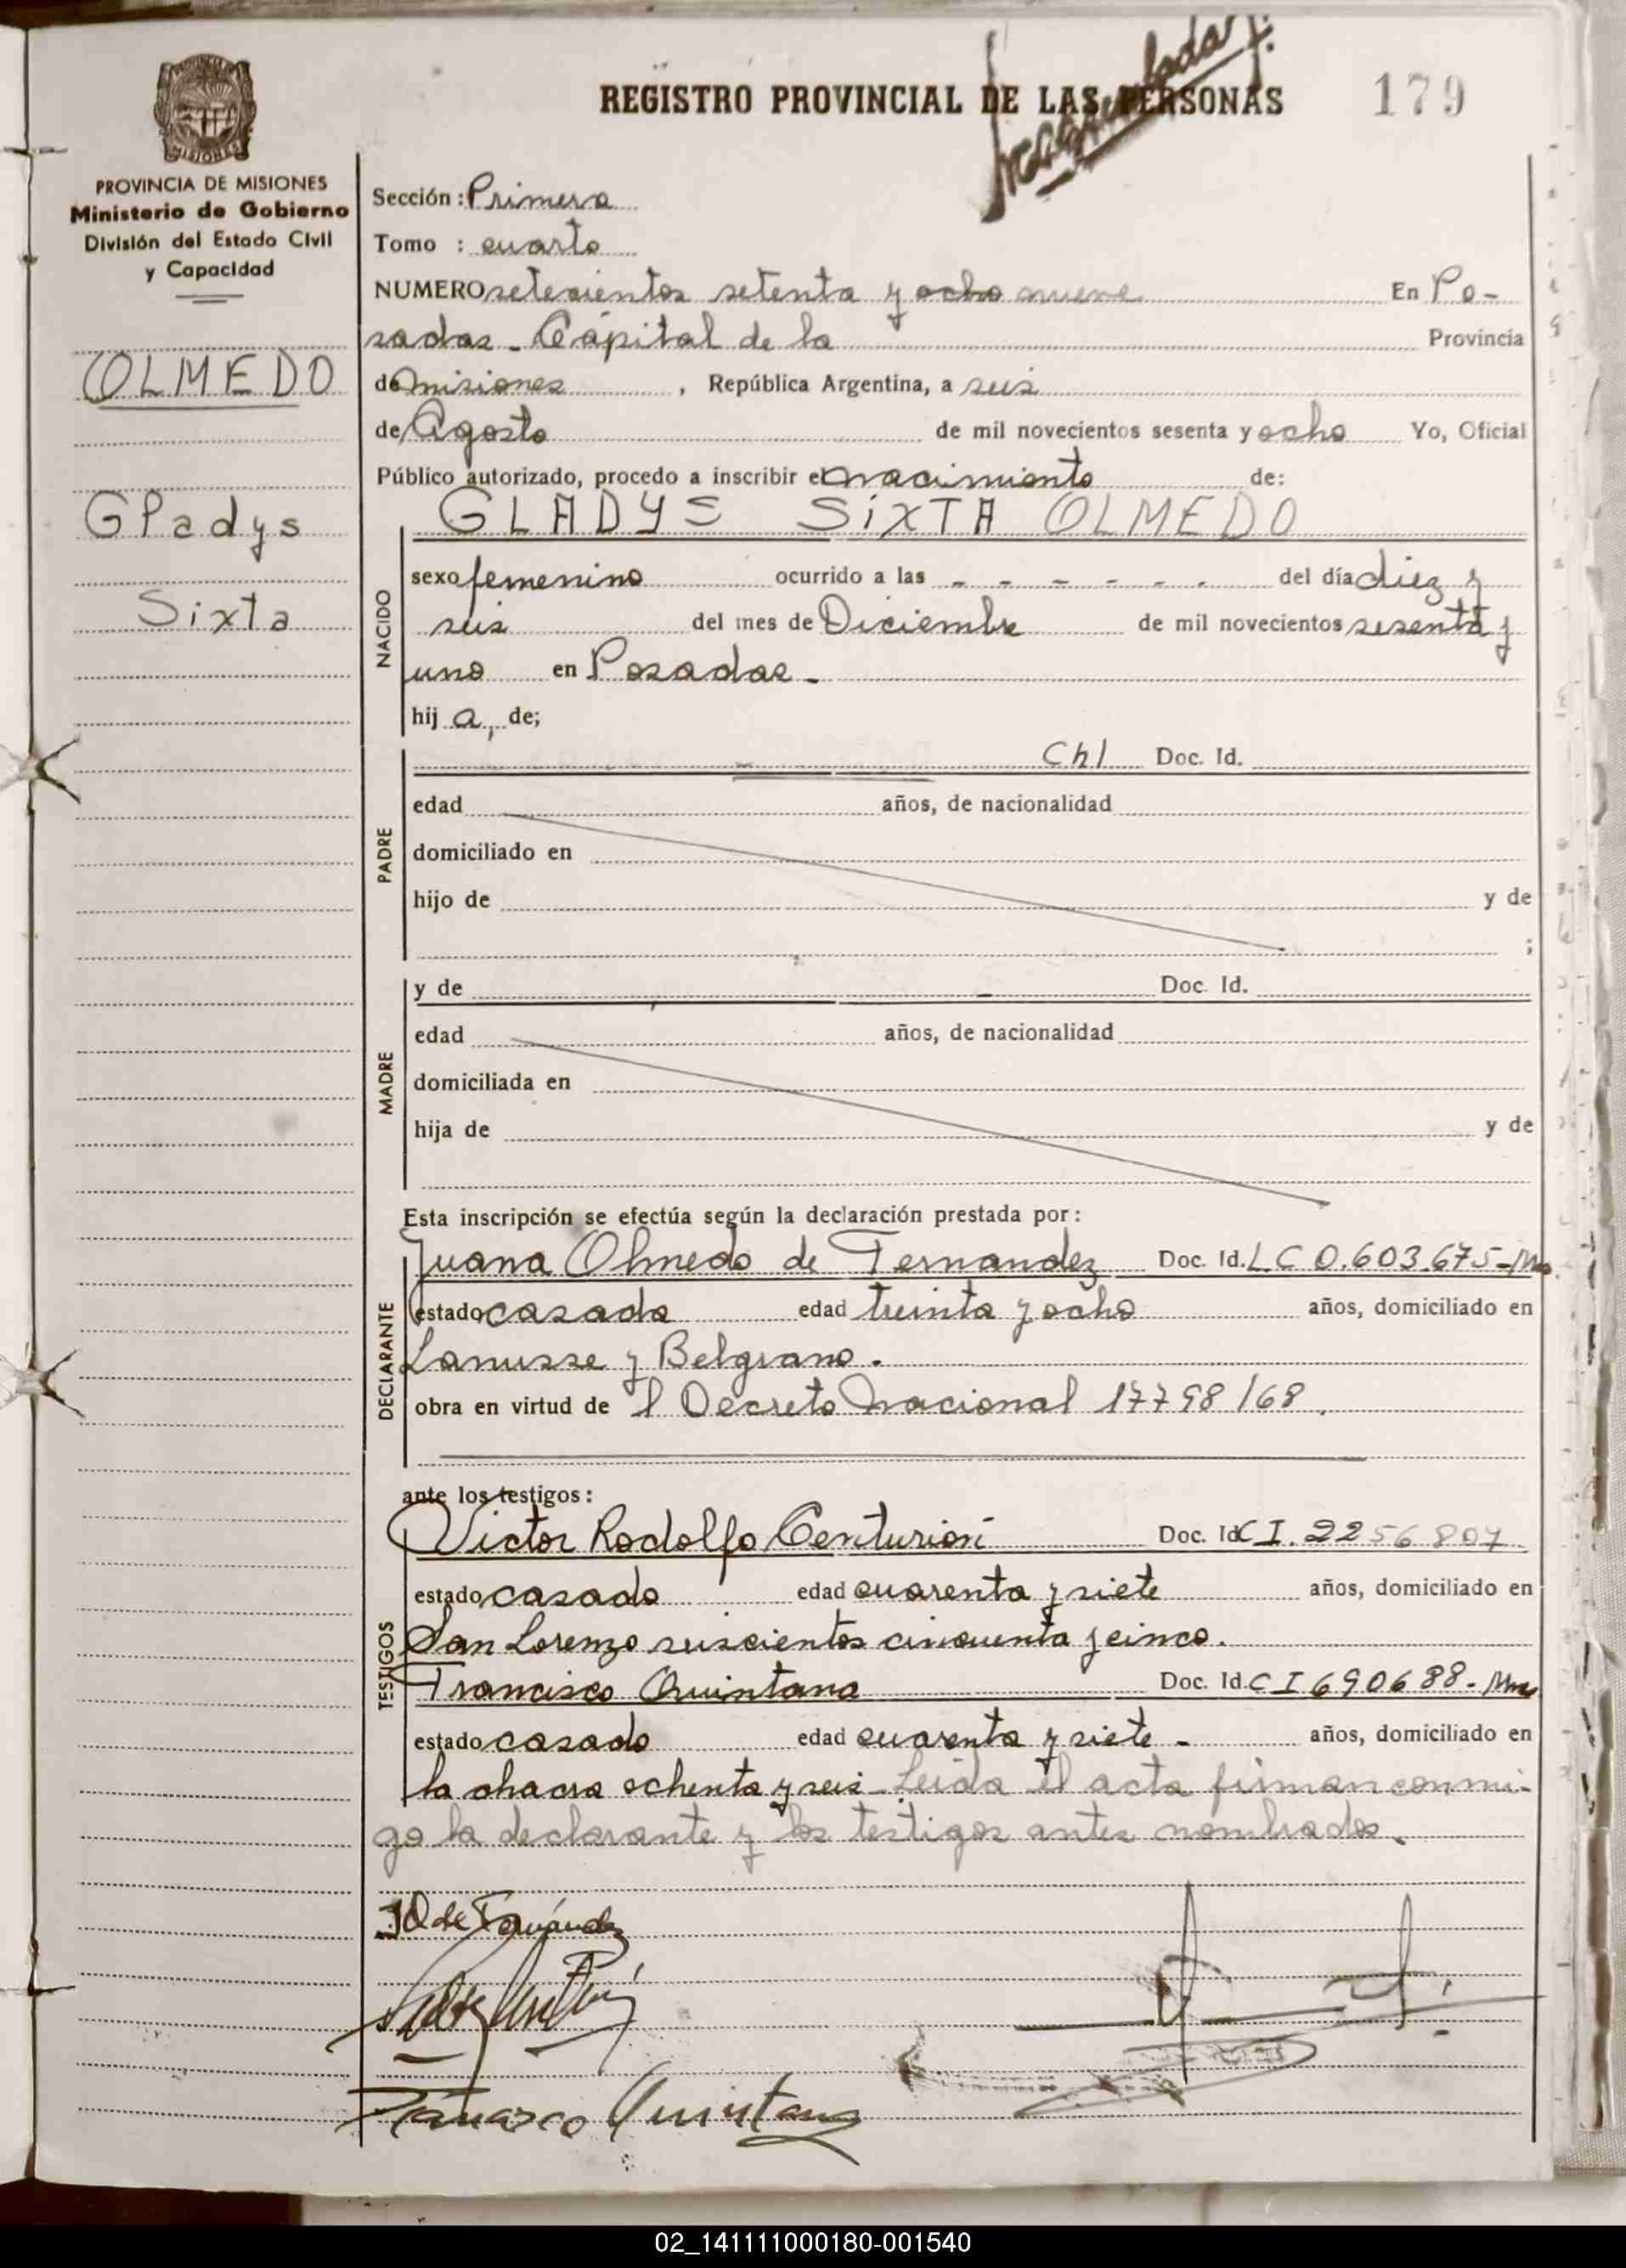 REGISTRO PROVINCIAL DE LAS PERSONAS
179
MISIONES
PROVINCIA DE MISIONES
Ministerio de Gobierno
División del Estado Civil
y Capacidad
OLMEDO
Gladys
Sixta
Sección : Primera
Tomo : cuarto
NUMERO setecientos setenta y ocho nueve En Po-
sadas - Capital de la Provincia
de misiones , República Argentina, a seis
de Agosto de mil novecientos sesenta y ocho Yo, Oficial
Público autorizado, procedo a inscribir el nacimiento de:
GLADYS SIXTA OLMEDO
NACIDO
sexo femenino ocurrido a las - - - - - - del día diez y
seis del mes de Diciembre de mil novecientos sesenta y
uno en Posadas -
hij a, de;
PADRE
Doc. Id.
edad años, de nacionalidad
domiciliado en
hijo de y de
;
MADRE
y de Doc. Id.
edad años, de nacionalidad
domiciliada en
hija de y de
Esta inscripción se efectúa según la declaración prestada por:
DECLARANTE
Juana Olmedo de Fernandez Doc. Id. L C 0.603.675-Mns.
estado casada edad treinta y ocho años, domiciliado en
Lanusse y Belgrano.
obra en virtud de l Decreto nacional 17798/68.
ante los testigos:
TESTIGOS
Victor Rodolfo Centurión Doc. Id C I. 2256807
estado casado edad cuarenta y siete años, domiciliado en
San Lorenzo seiscientos cincuenta y cinco.
Francisco Quintana Doc. Id. C I 690688-Mns
estado casado edad cuarenta y siete - años, domiciliado en
la chacra ochenta y seis - Leida el acta firman conmi-
go la declarante y los testigos antes nombrados.
JO de Fernández
Francisco Quintana
02_141111000180-001540